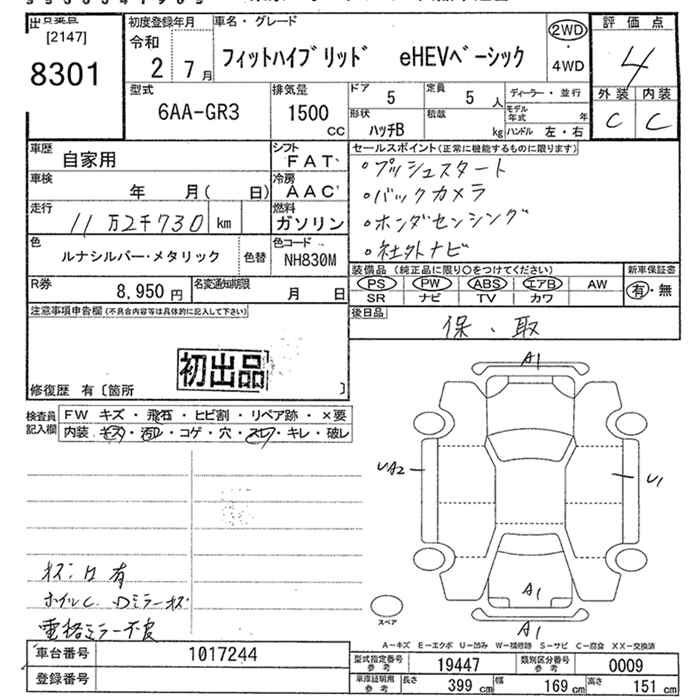 出品票
[2147]
8301
初度登録年月
令和
2年 7月
車名・グレード
フィットハイブリッド eHEVベーシック
2WD
・
4WD
評価点
4
外装 内装
C C
型式
6AA-GR3
排気量
1500
CC
ドア
5
定員
5人
ディーラー・並行
形状
ハッチB
積載
kg
モデル年式 年
ハンドル 左・右
車歴
自家用
シフト
FAT
車検
年 月( 日)
冷房
AAC
走行
11万2千730 km
燃料
ガソリン
色
ルナシルバー・メタリック
色替
色コード
NH830M
R券
8,950円
名変通知期限
月 日
セールスポイント(正常に機能するものに限ります)
・プッシュスタート
・バックカメラ
・ホンダセンシング
・社外ナビ
装備品(純正品に限り○をつけてください)
PS PW ABS エアB AW
SR ナビ TV カワ
新車保証書
有・無
後日品
保、取
注意事項申告欄(不具合内容等は具体的に記入して下さい)
初出品
修復歴 有〔箇所 〕
検査員記入欄
FW キズ・飛石・ヒビ割・リペア跡・×要
内装・キズ・汚れ・コゲ・穴・スレ・キレ・破レ
A1
UA2
U1
A1
A1
スペア
有
ホイルC Dミラーキズ
電格ミラー不良
A-キズ E-エクボ U-凹み W-補修跡 S-サビ C-腐食 XX-交換済
車台番号
1017244
登録番号
型式指定番号
参考
19447
類別区分番号
参考
0009
車庫証明用
参考
長さ 399cm
幅 169cm
高さ 151cm